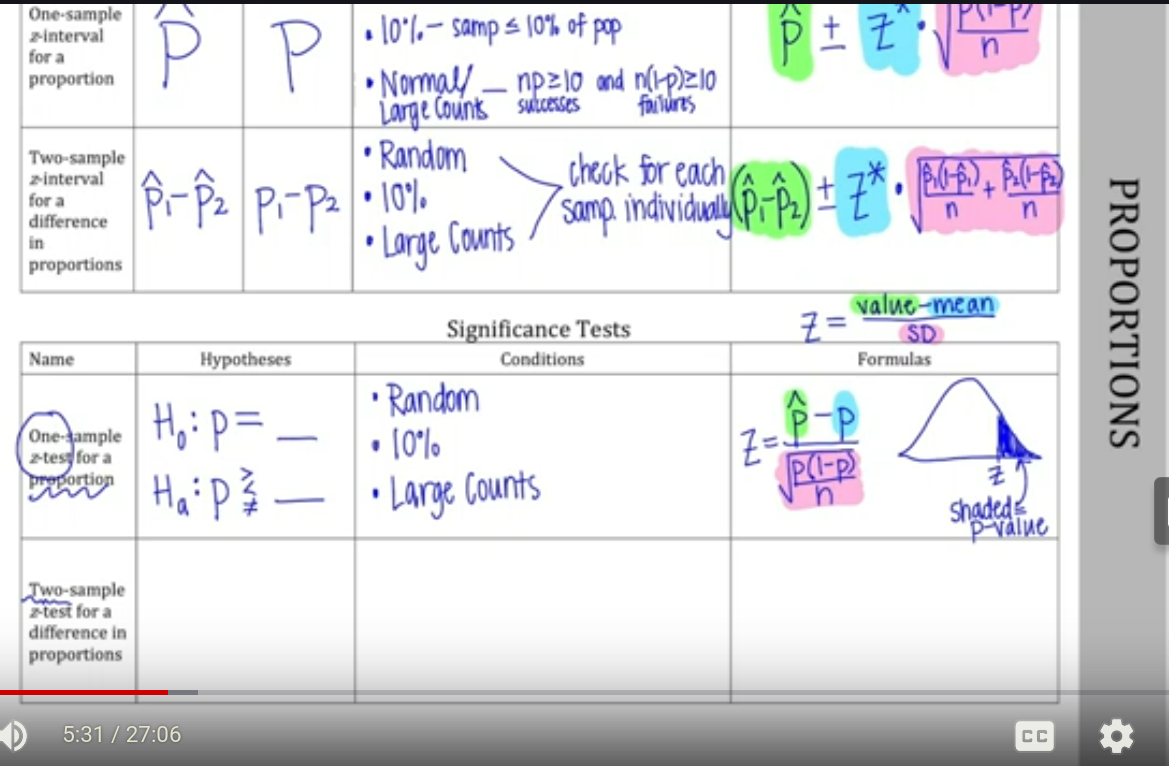 One-sample
z-interval
for a
proportion
p̂
p
• 10% – samp ≤ 10% of pop
• Normal/ — np ≥ 10 and n(1-p) ≥ 10
Large Counts successes failures
p̂ ± z* · √(p(1-p)/n)
Two-sample
z-interval
for a
difference
in
proportions
p̂₁-p̂₂
p₁-p₂
• Random
• 10%
• Large Counts
check for each
samp. individually
(p̂₁-p̂₂) ± z* · √(p̂₁(1-p̂₁)/n + p̂₂(1-p̂₂)/n)
PROPORTIONS
Significance Tests
z = value-mean / SD
Name Hypotheses Conditions Formulas
One-sample
z-test for a
proportion
H₀: p = __
Hₐ: p > < ≠ __
• Random
• 10%
• Large Counts
z = p̂ - p / √(p(1-p)/n)
z
shaded =
p-value
Two-sample
z-test for a
difference in
proportions
5:31 / 27:06
CC